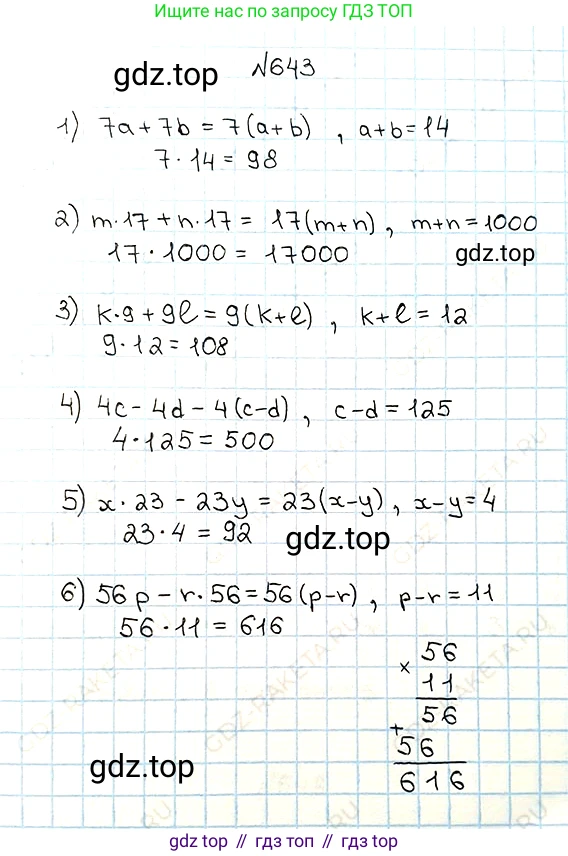 Ищите нас по запросу ГДЗ ТОП
gdz.top №643
1) 7a + 7b = 7(a+b) , a+b=14
7·14 = 98
2) m·17 + n·17 = 17(m+n) , m+n=1000
17·1000 = 17000 gdz.top
3) k·9 + 9l = 9(k+l) , k+l=12
9·12=108
4) 4c - 4d - 4(c-d) , c-d=125
4·125=500
5) x·23 - 23y = 23(x-y) , x-y=4
23·4 = 92 gdz.top
6) 56p - r·56=56(p-r) , p-r=11
56·11 = 616
56
×
11
56
+
56
616
gdz.top
gdz.top // гдз топ // гдз.топ
GDZ-RAKETA.RU